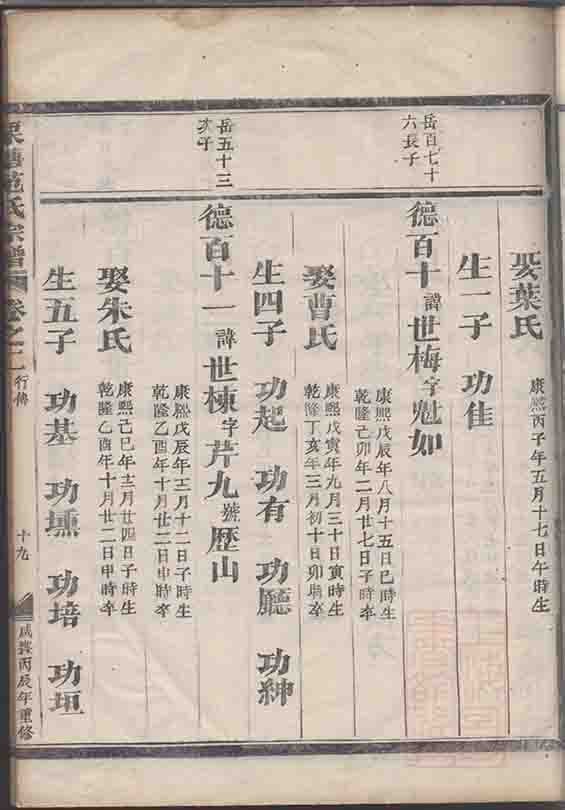 娶葉氏
康熙丙子年五月十七日午時生
生一子 功佳
岳百七十
六長子
德百十 諱世梅字魁如
康熙戊辰年八月十五日巳時生
乾隆己卯年二月廿七日子時卒
娶曹氏
康熙戊寅年九月三十日寅時生
乾隆丁亥年三月初十日卯時卒
生四子 功起 功有 功廳 功紳
岳五十三
次子
德百十一 諱世棟字芹九號歷山
康熙戊辰年三月十二日子時生
乾隆乙酉年十月廿二日申時卒
娶朱氏
康熙己巳年十二月廿四日子時生
乾隆乙酉年十月廿二日申時卒
生五子 功基 功壎 功培 功垣
氏宗譜 卷之二 行傳
十九
咸豐丙辰年重修